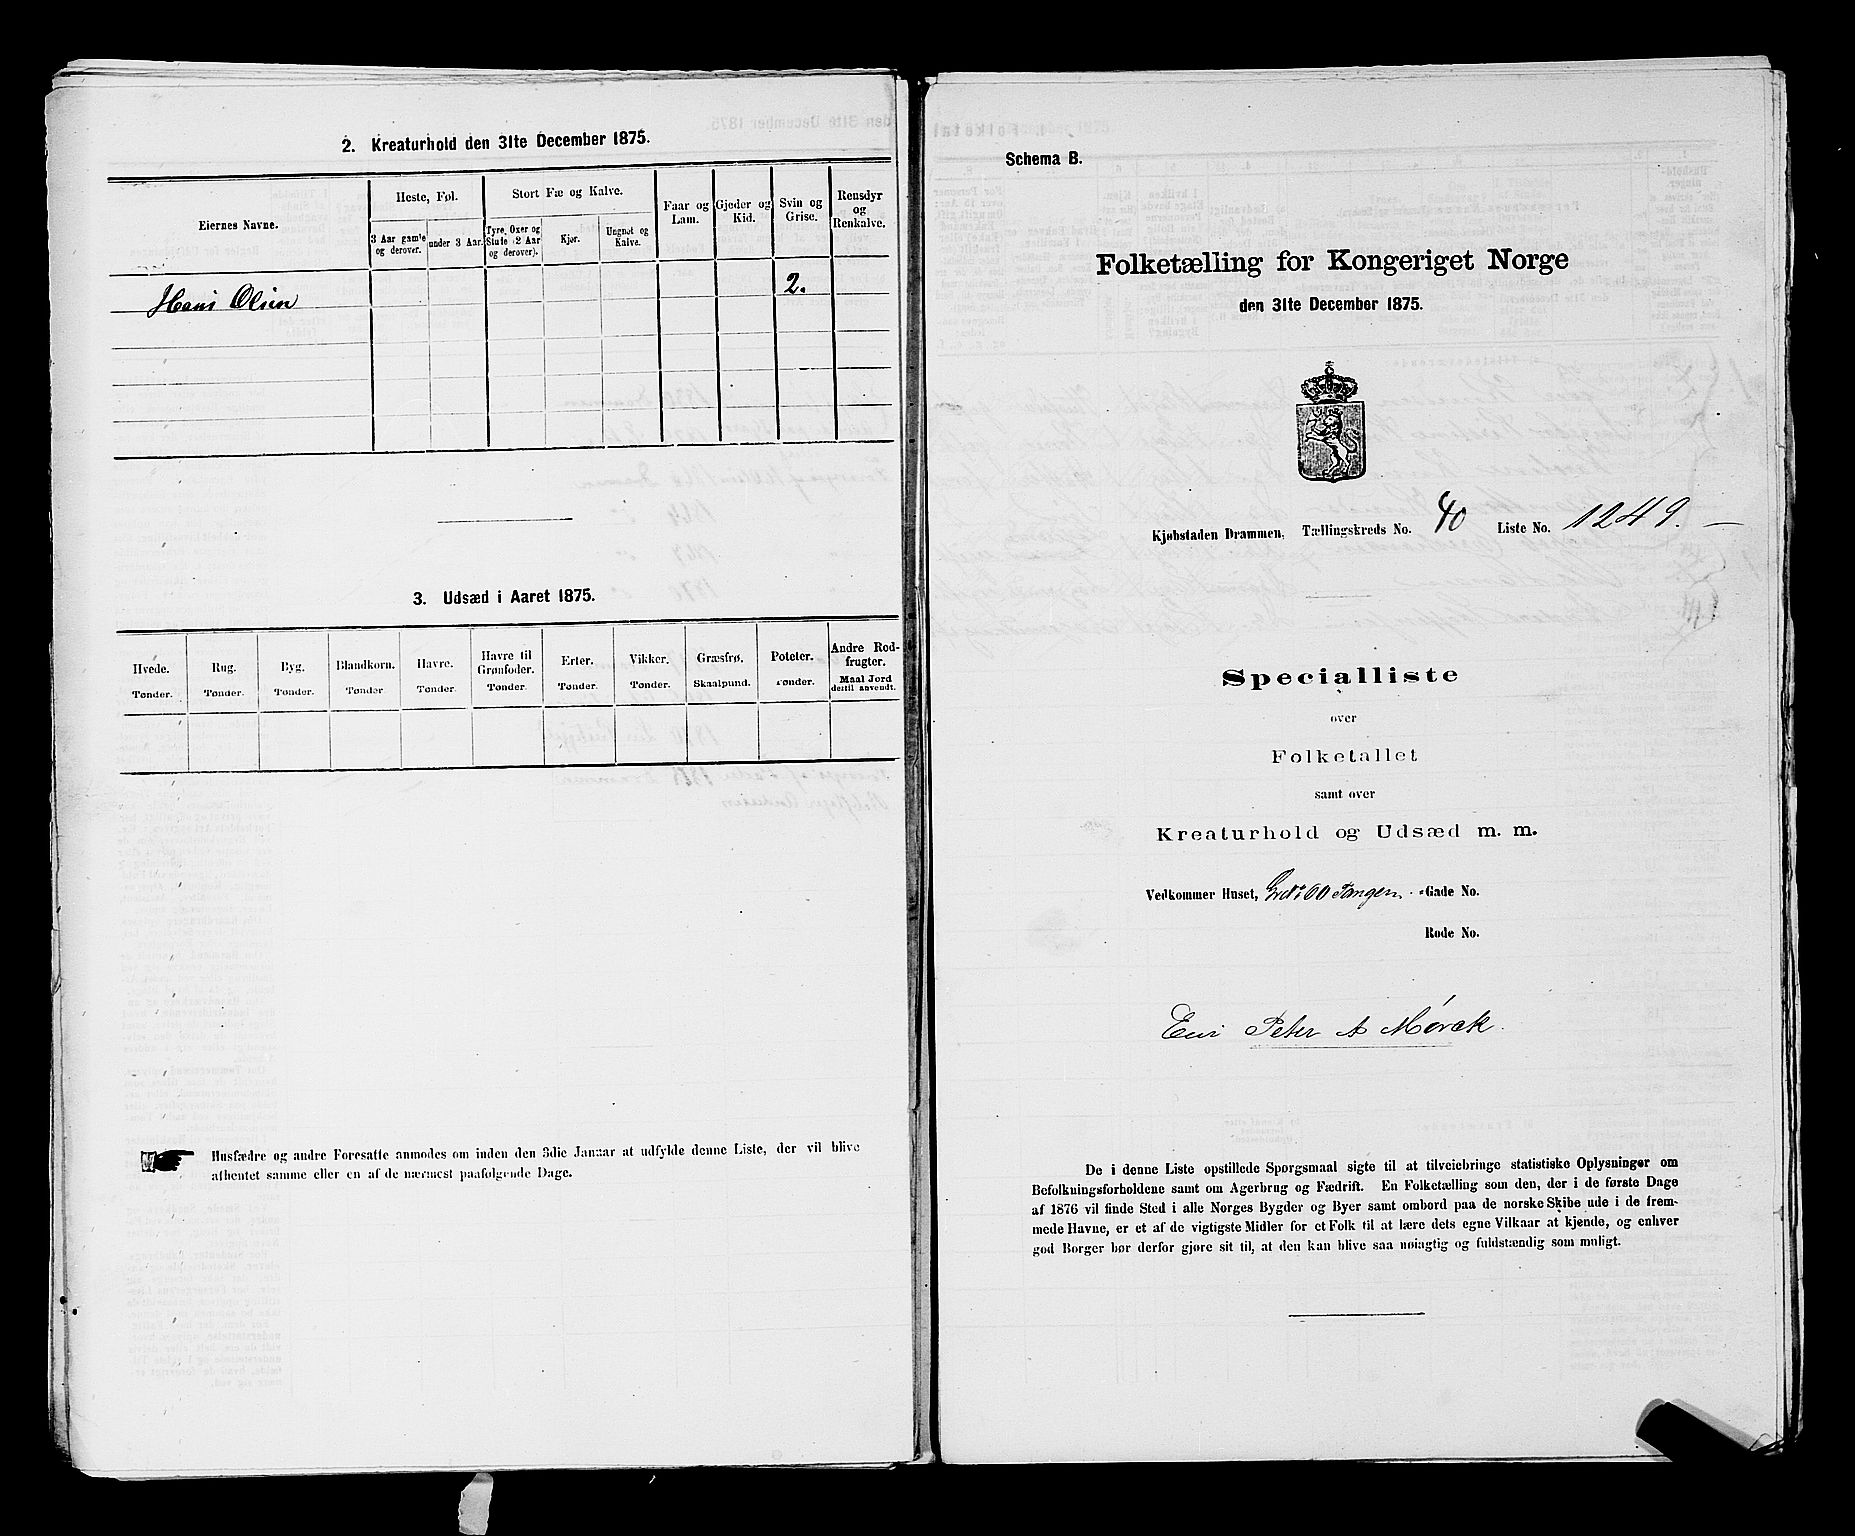 2. Kreaturhold den 31te December 1875.
Eiernes Navne.
Heste, Føl.
3 Aar gamle og derover.
under 3 Aar.
Stort Fæ og Kalve.
Tyre, Oxer og Stute (2 Aar og derover).
Kjør.
Ungnøt og Kalve.
Faar og Lam.
Gjeder og Kid.
Svin og Grise.
Rensdyr og Renkalve.
Hans Olsen 2.
3. Udsæd i Aaret 1875.
Hvede. Tønder.
Rug. Tønder.
Byg. Tønder.
Blandkorn. Tønder.
Havre. Tønder.
Havre til Grønfoder. Tønder.
Erter. Tønder.
Vikker. Tønder.
Græsfrø. Skaalpund.
Poteter. Tønder.
Andre Rodfrugter. Maal Jord dertil anvendt.
Husfædre og andre Foresatte anmodes om inden den 3die Januar at udfylde denne Liste, der vil blive
afhentet samme eller en af de nærmest paafølgende Dage.
Schema B.
Folketælling for Kongeriget Norge
den 31te December 1875.
Kjøbstaden Drammen, Tællingskreds No. 40 Liste No. 1249.
Specialliste
over
Folketallet
samt over
Kreaturhold og Udsæd m. m.
Vedkommer Huset, 60 Tangen -Gade No.
Rode No.
Eier Peter A Mørck.
De i denne Liste opstillede Spørgsmaal sigte til at tilveiebringe statistiske Oplysninger om
Befolkningsforholdene samt om Agerbrug og Fædrift. En Folketælling som den, der i de første Dage
af 1876 vil finde Sted i alle Norges Bygder og Byer samt ombord paa de norske Skibe ude i de frem-
mede Havne, er et af de vigtigste Midler for et Folk til at lære dets egne Vilkaar at kjende, og enhver
god Borger bør derfor gjøre sit til, at den kan blive saa nøiagtig og fuldstændig som muligt.